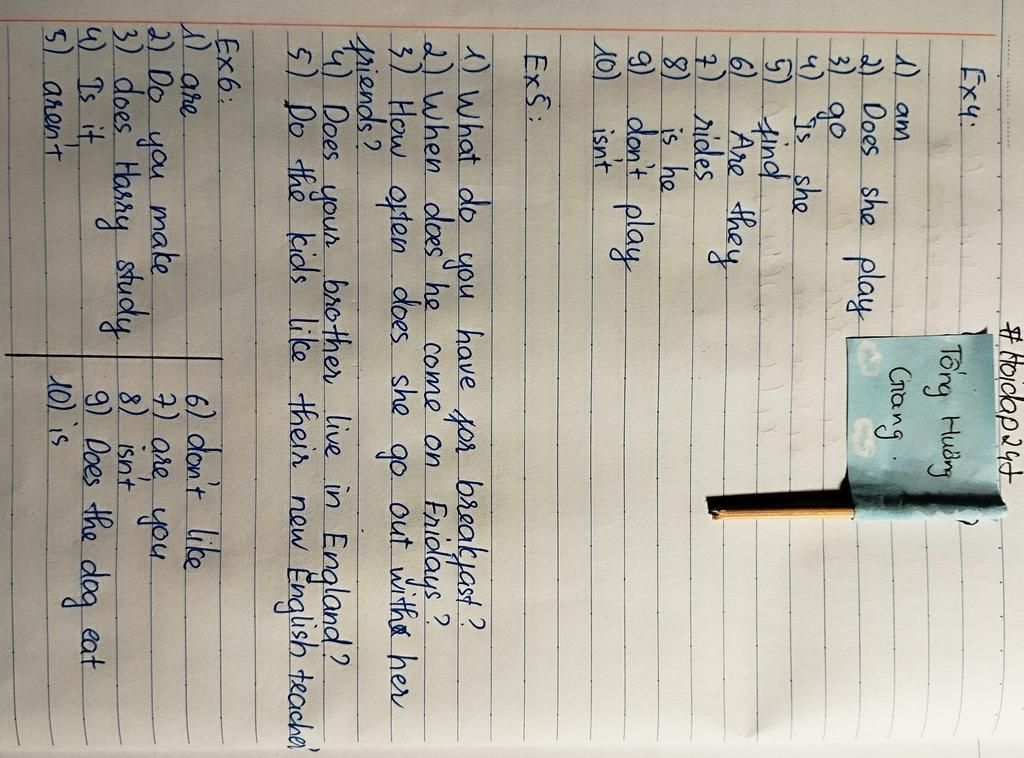 #Hoidap247
Tống Hương
Giang.
Ex4:
1) am
2) Does she play
3) go
4) Is she
5) find
6) Are they
7) rides
8) is he
9) don't play
10) isn't
Ex5:
1) What do you have for breakfast?
2) When does he come on Fridays?
3) How often does she go out with her
friends?
4) Does your brother live in England?
5) Do the kids like their new English teacher
Ex6:
1) are
2) Do you make
3) does Harry study
4) Is it
5) aren't
6) don't like
7) are you
8) isn't
9) Does the dog eat
10) is